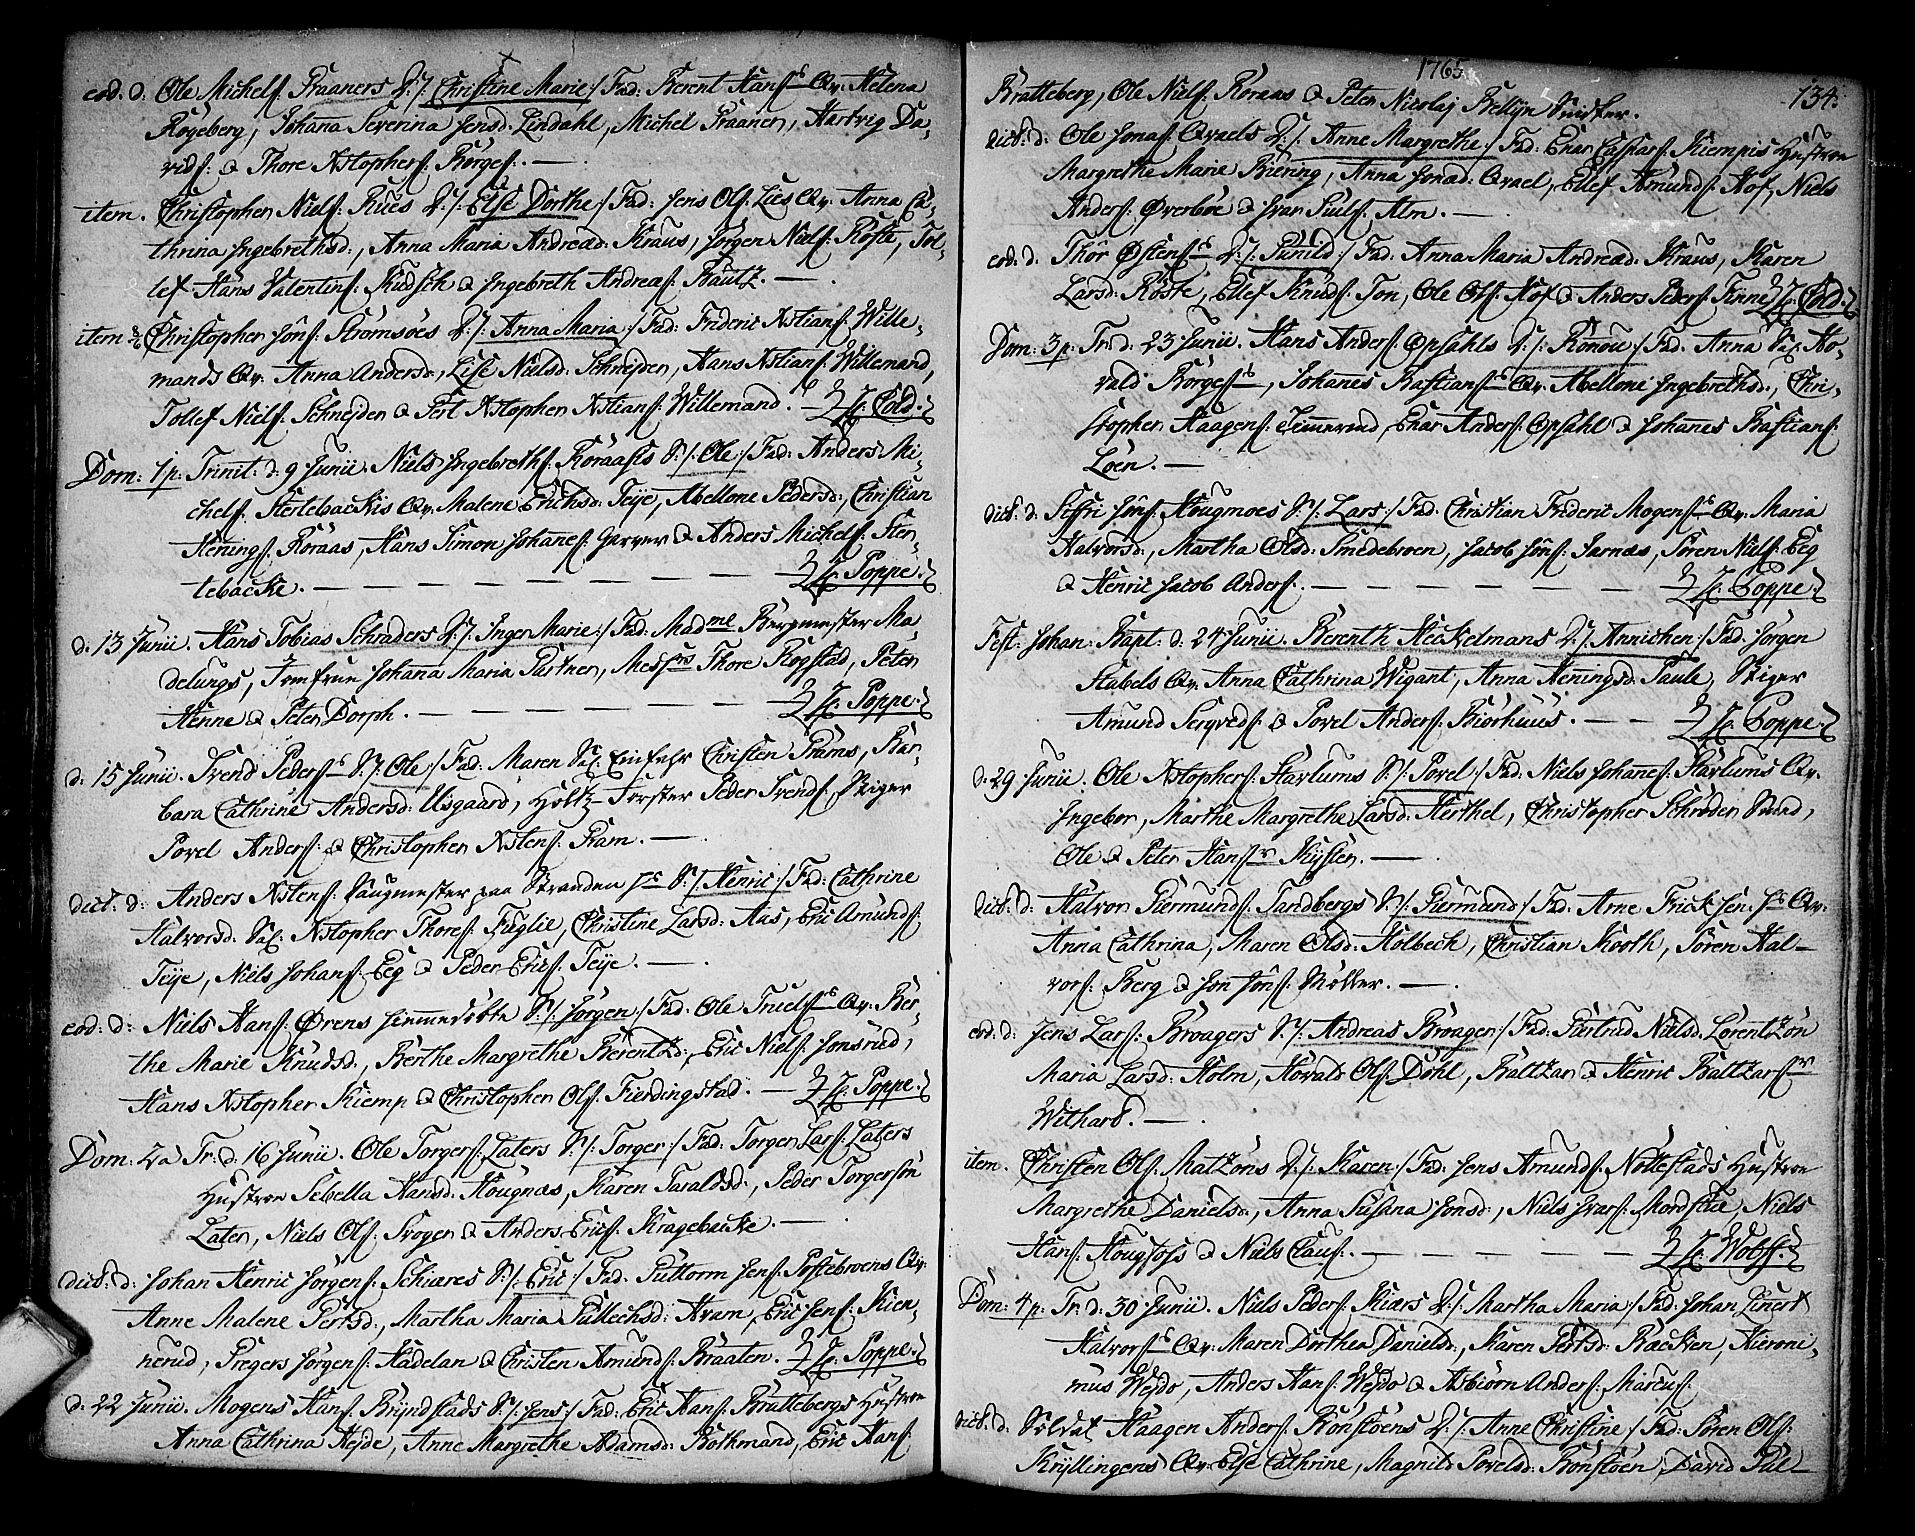 eod. d: Ole Michels: Praaners D:/: Christine Marie :/ Fad: Berent Hans:s Qv: Helena
Rögeberg, Johana Severina Jensd: Lindahl, Michel Praaner, Hartvig Da-
vids: & Thore Xstophers: Börges: —
item. Christopher Niels: Rues D:/: Else Dorthe :/ Fad: Jens Ols: Lies Qv: Anna Ca-
thrina Ingebrethsd:, Anna Maria Andreæd: Kraus, Jörgen Niels: Röste, Tol-
lef Hans Valentins: Kudsch & Ingebreth Andreas: Rautz. —
item. Christopher Jöns: Strömsöes D:/: Anna Maria :/ Fad: Frideric Xstians: Wille-
mands Qv: Anna Andersd:, Lise Nielsd: Schnejder, Hans Xstians: Willemand,
Tollef Niels: Schnejder & Pert Xstopher Xstians: Willemand. — Cold.
Dom: 1 p: Trinit: d: 9 Junii. Niels Ingebreths: Koraasis S:/: Ole :/ Fad: Anders Mi-
chels: Stertebackis Qv: Malene Erichsd: Teije, Abellone Pedersd:, Christian
Henings: Koraas, Hans Simon Johanes: Garver & Anders Michels: Ster-
tebacke. — — — — — — — Poppe.
d: 13 Junii. Hans Tobias Schraders D:/: Inger Marie :/ Fad: Madme Bergmester Ma-
delungs, Jomfrue Johana Maria Partner, Messrs Thore Rogstad, Peter
Henne & Peter Dorph. — — — — — — Poppe.
d: 15 Junii. Svend Peders:s S:/: Ole :/ Fad: Maren Sal: Einfahr Christen Prams, Bar-
bara Cathrine Andersd: Uisgaard, Holtz-Forster Peder Svends: Stiger
Povel Anders: & Christopher Xstens: Pram. —
dict: d: Anders Xstens: Laugmester paa Stranden hs S:/: Henric :/ Fad: Cathrine
Halvorsd: Sal: Xstopher Thores: Fuglie, Christine Larsd: Aas, Eric Amunds:
Teije, Niels Johans: Eeg & Peder Erics: Teije. —
eod: d: Niels Hans: Ørens S:/: Jörgen :/ Fad: Ole Truels:s Qv: Ber-
the Marie Knudsd:, Berthe Margrethe Berentzd:, Eric Niels: Jonsrud,
Hans Xstopher Kiemp & Christopher Ols: Fierdingstad. — Poppe.
Dom: 2 a Tr: d: 16 Junii. Ole Torgers: Laters S:/: Torger :/ Fad: Torger Lars: Laters
Hustroe Sebella Hansd: Hougnæs, Karen Taraldsd:, Peder Torgersön
Later, Niels Ols: Skoger & Anders Erics: Kragebacke. —
dict: d: Johan Henric Jörgens: Schiæres S:/: Eric :/ Fad: Guttorm Jens: Fossebroens Qv:
Anne Malene Pertsd:, Martha Maria Gullechsd: Hvam, Eric Jens: Kien-
nerud, Gregers Jörgens: Hadelan & Christen Amunds: Braaten. Poppe.
d: 22 Junii. Mogens Hans: Bryndstads S:/: Jens :/ Fad: Eric Hans: Brattebergs Hustroe
Anna Cathrina Hejde, Anne Margrethe Adamsd: Bothmand, Eric Hans:
1765
134.
Bratteberg, Ole Niels: Koraas & Peter Nicolaj Bellijn Snidker.
dict: d: Ole Jonas: Qvaels D:/: Anne Margrethe :/ Fad: Enar Caspars: Kiempis Hustroe
Margrethe Marie Biering, Anna Jonæd: Qvael, Ellef Amunds: Hof, Niels
Anders: Øverböe & Ivar Juils: Alm. —
eod: d. Thor Østens:s D:/: Gunild :/ Fad: Anna Maria Andreæd: Kraus, Karen
Larsd: Röste, Ellef Knuds: Ton, Ole Ols: Hof & Anders Peders: Finne Cold.
Dom: 3 p: Tr: d: 23 Junii. Hans Anders: Opsahls D:/: Rönou :/ Fad: Anna Sal: Ho-
vald Börges:s, Johanes Bastians:s Qv: Abellone Ingebrethsd:, Chri-
stopher Haagens: Temmerud, Enar Anders: Opsahl & Johanes Bastians:
Löen. —
dict: d: Siffri Jöns: Hougmoes S:/: Lars :/ Fad: Christian Frideric Mogens:s Qv: Maria
Halvorsd:, Martha Olsd: Smedebroen, Jacob Jöns: Jarnæs, Sören Niels: Eeg
& Henric Jacob Anders: — — — — Poppe.
Fest: Johan: Bapt: d: 24 Junii. Berentz Heckelmans D:/: Annichen :/ Fad: Jörgen
Stabels Qv: Anna Cathrina Wigant, Anna Heningsd: Paule, Stiger
Amund Serqveds: & Povel Anders: Biorhuus. — — Poppe.
d: 29 Junii. Ole Xstophers: Skarlums S:/: Povel :/ Fad: Niels Johanes: Skarlums Qv:
Ingebor, Marthe Margrethe Larsd: Herthel, Christopher Schröder Svend,
Ole & Peter Hans:r Thyster. —
dict: d: Halvor Giermunds: Sandbergs S:/: Giermund :/ Fad: Arne Frick sen: hs Qv:
Anna Cathrina, Maren Olsd: Holbech, Christian Korth, Sören Hal-
vors: Berg & Jon Jöns: Möller. —
eod: d: Jens Lars: Broagers S:/: Andreas Broager :/ Fad: Giertrud Nielsd: Lorentzön
Maria Larsd: Holm, Hovald Ols: Döhl, Baltzar & Henric Baltzars:r
Withard. —
item. Christen Ols: Matzöns D:/: Karen :/ Fad: Jens Amunds: Nöttestads Hustroe
Margrethe Danielsd:, Anna Susana Jonsd:, Niels Ivars: Mordskue, Niels
Hans: Hougfoss & Niels Claus: — — — — Wolff.
Dom: 4 p: Tr: d: 30 Junii. Niels Peders: Skiærs D:/: Martha Maria :/ Fad: Johan Linert
Halvors:s Qv: Maren Dorthea Danielsd:, Karen Pertsd: Backen, Hieroni-
mus Wejdo, Anders Hans: Wejdo & Asbiörn Anders: Marcus:
dict: d. Soldat Haagen Anders: Bonstöens D:/: Anne Christine :/ Fad: Sören Ols:
Kryllingens Qv: Else Cathrine, Magnild Povelsd: Bonstöen, David Pul-